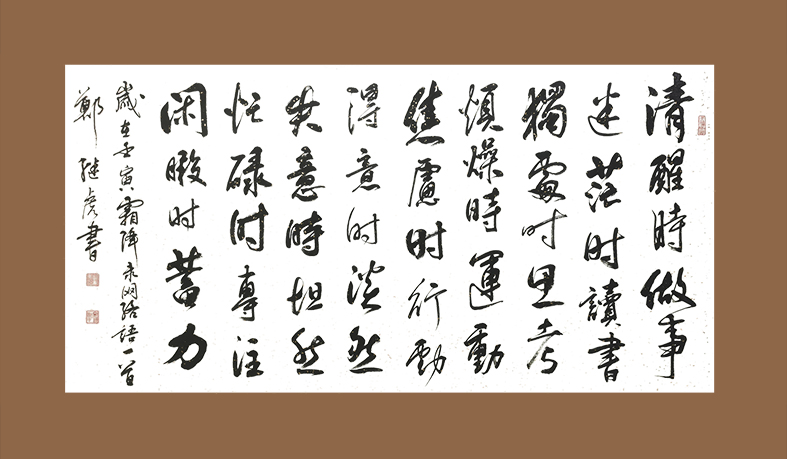 清醒時做事
迷茫时讀書
獨處时思考
煩燥時運動
焦慮时行動
得意时淡然
失意時坦然
忙碌时專注
闲暇时蓄力
歲在壬寅霜降录网络語一首
鄭继虎書